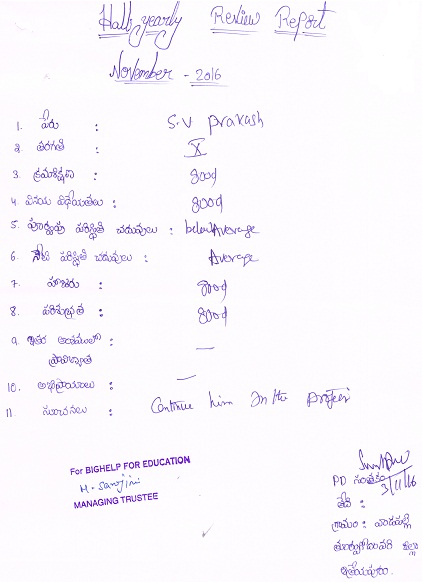 Half yearly Review Report
November - 2016
1. పేరు : S.V Prakash
2. తరగతి : X
3. క్రమశిక్షణ : good
4. వినయ విధేయతలు : good
5. పూర్వపు పరిస్థితి చదువులు : below Average
6. నేటి పరిస్థితి చదువులు : Average
7. హాజరు : good
8. పరిశుభ్రత : good
9. ఇతర అంశములలో : —
ప్రావీణ్యత
10. అభిప్రాయాలు : —
11. సూచనలు : Continue him in the project
For BIGHELP FOR EDUCATION
H. Sarojini
MANAGING TRUSTEE
PD సంతకం
3/11/16
తేది :
గ్రామం :
తూర్పుగోదావరి జిల్లా
ఆత్రేయపురం.